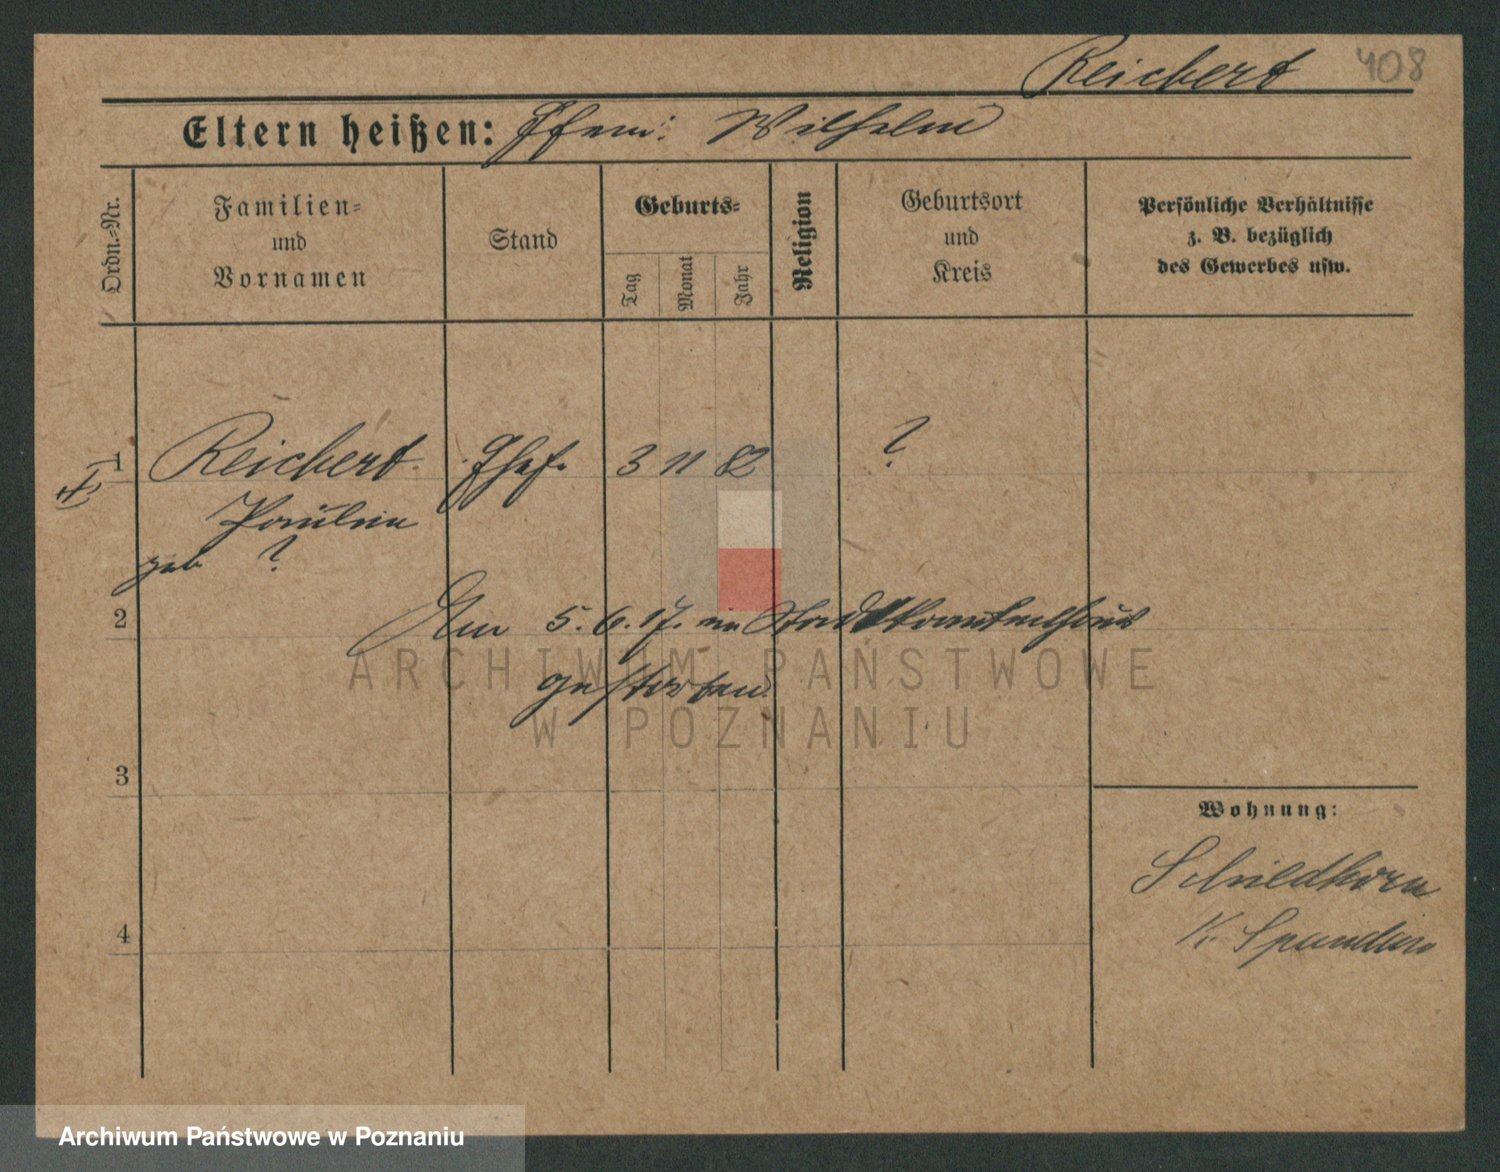 Reichert 408
Eltern heißen: Ehem: Wilhelm
Ordn.=Nr.
Familien=
und
Vornamen
Stand
Geburts=
Tag
Monat
Jahr
Religion
Geburtsort
und
Kreis
Persönliche Verhältnisse
z. B. bezüglich
des Gewerbes usw.
1 Reichert Ehef. 3 11 82 ?
Pauline
geb ?
2
Am 5.6.17. im Stadtkrankenhaus
gestorben.
ARCHIWUM PAŃSTWOWE
W POZNANIU
3
Wohnung:
Schildhorn
K. Spandau
4
Archiwum Państwowe w Poznaniu